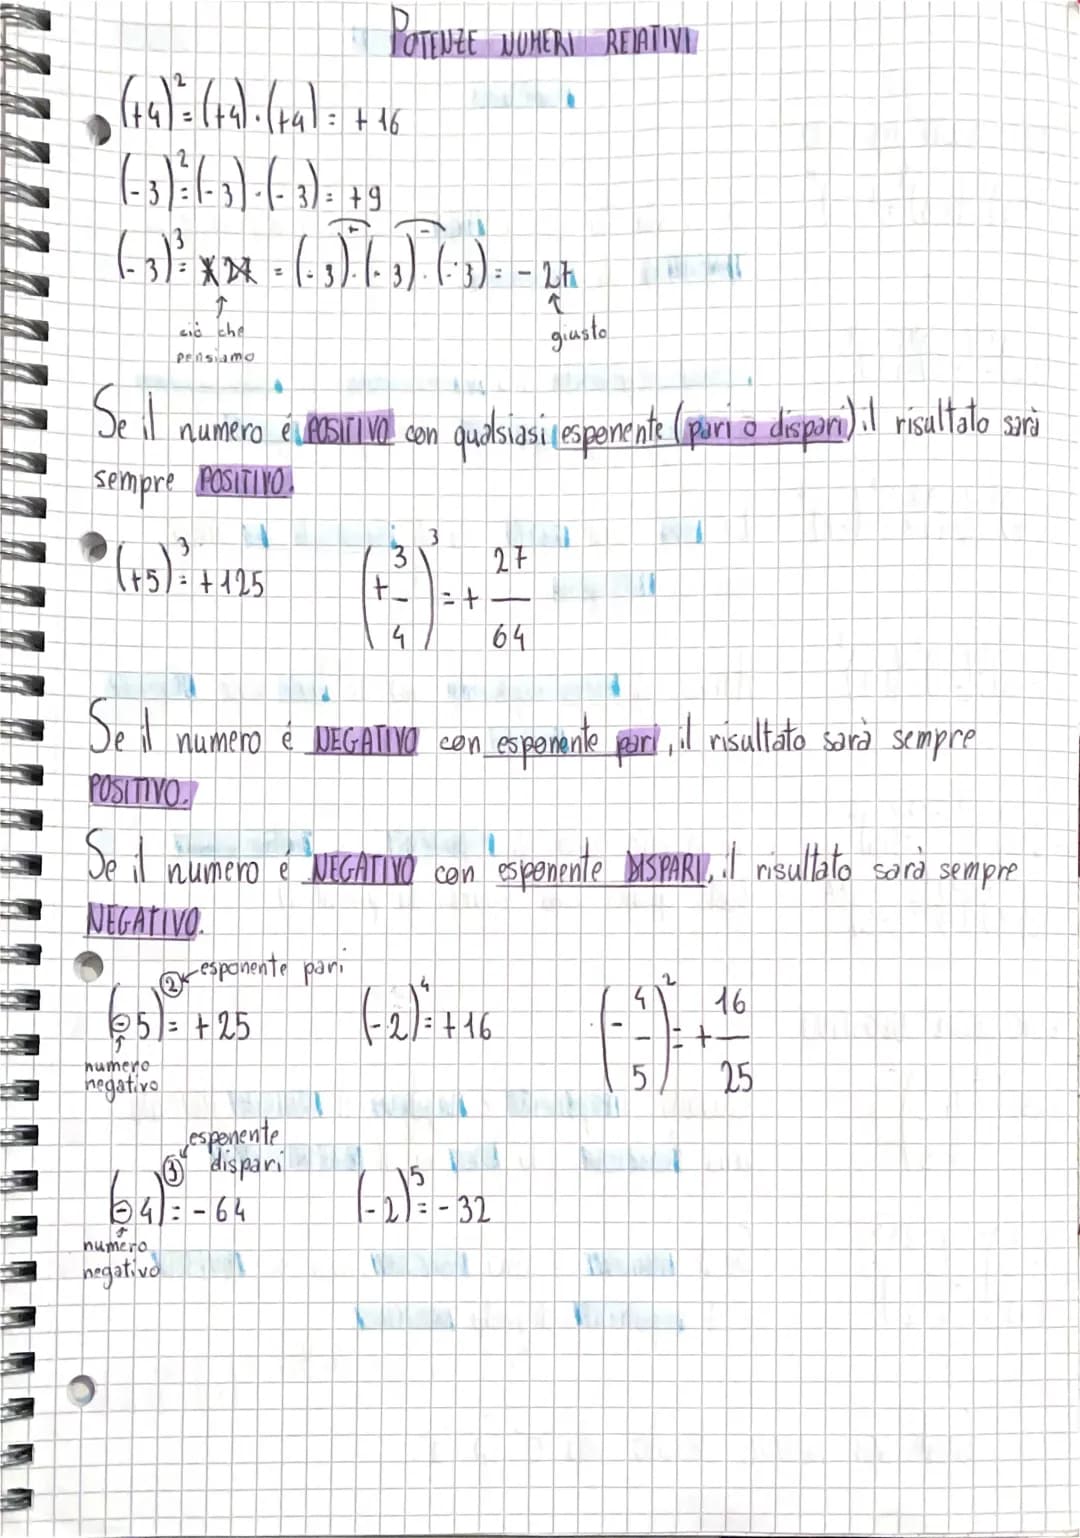 POTENZE NUMERI RELATIVI
(+4)² = (+4)·(+4) = +16
(-3)² = (-3)·(-3) = +9
(-3)³ = +27 = (-3)·(-3)·(-3) = -27
+ -
↑ ↑
ciò che giusto
pensiamo
Se il numero é POSITIVO con qualsiasi esponente (pari o dispari) il risultato sarà
sempre POSITIVO.
(+5)³ = +125 (+3/4)³ = +27/64
Se il numero é NEGATIVO con esponente pari, il risultato sarà sempre
POSITIVO.
Se il numero é NEGATIVO con esponente DISPARI, il risultato sarà sempre
NEGATIVO.
←esponente pari
(-5)² = +25 (-2)⁴ = +16 (-4/5)² = +16/25
↑
numero
negativo
esponente
dispari
(-4)³ = -64 (-2)⁵ = -32
↑
numero
negativo